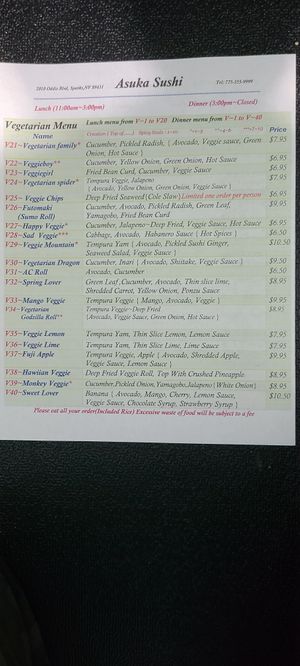 Asuka Sushi
2810 Oddie Blvd, Sparks, NV 89431
Tel: 775-355-9999
Lunch (11:00am~3:00pm) Dinner (3:00pm~Closed)
Vegetarian Menu Lunch menu from V~1 to V20 Dinner menu from V~1 to V~40
Name Price
V21~Vegetarian family* Cucumber, Pickled Radish, { Avocado, Veggie sauce, Green $7.95
Onion, Hot Sauce }
V22~Veggieboy** Cucumber, Yellow Onion, Green Onion, Hot Sauce $6.95
V23~Veggiegirl Fried Bean Curd, Cucumber, Veggie Sauce $6.95
V24~Vegetarian spider* Tempura Veggie, Jalapeno $7.95
{ Avocado, Yellow Onion, Green Onion, Veggie Sauce }
V25~ Veggie Chips Deep Fried Seaweed(Cole Slaw)Limited one order per person $6.95
V26~Futomaki Cucumber, Avocado, Pickled Radish, Green Leaf, $9.95
(Sumo Roll) Yamagobo, Fried Bean Curd
V27~Happy Veggie* Cucumber, Jalapeno~Deep Fried, Veggie Sauce, Hot Sauce $6.95
V28~Sad Veggie*** Cabbage, Avocado, Habanero Sauce { Hot Spices } $6.50
V29~Veggie Mountain* Tempura Yam { Avocado, Pickled Sushi Ginger, $10.50
Seaweed Salad, Veggie Sauce }
V30~Vegetarian Dragon Cucumber, Inari { Avocado, Shiitake, Veggie Sauce } $9.50
V31~AC Roll Avocado, Cucumber $6.50
V32~Spring Lover Green Leaf, Cucumber, Avocado, Thin slice lime, $8.95
Shredded Carrot, Yellow Onion, Ponzu Sauce
V33~Mango Veggie Tempura Veggie { Mango, Avocado, Veggie } $9.95
V34~Vegetarian Tempura Veggie~Deep Fried $8.95
Godzilla Roll** {Avocado, Veggie Sauce, Green Onion, Hot Sauce }
V35~Veggie Lemon Tempura Veggie, Thin Slice Lemon, Lemon Sauce $7.95
V36~Veggie Lime Tempura Veggie, Thin Slice Lime, Lime Sauce $7.95
V37~Fuji Apple Tempura Veggie, Apple { Avocado, Shredded Apple, $9.95
Veggie Sauce, Lemon Sauce }
V38~Hawiian Veggie Deep Fried Veggie Roll, Top With Crushed Pineapple $8.95
V39~Monkey Veggie* Cucumber,Pickled Onion,Yamagobo,Jalapeno{White Onion} $8.95
V40~Sweet Lover Banana { Avocado, Mango, Cherry, Lemon Sauce, $10.50
Veggie Sauce, Chocolate Syrup, Strawberry Syrup }
Please eat all your order(Included Rice) Excessive waste of food will be subject to a fee